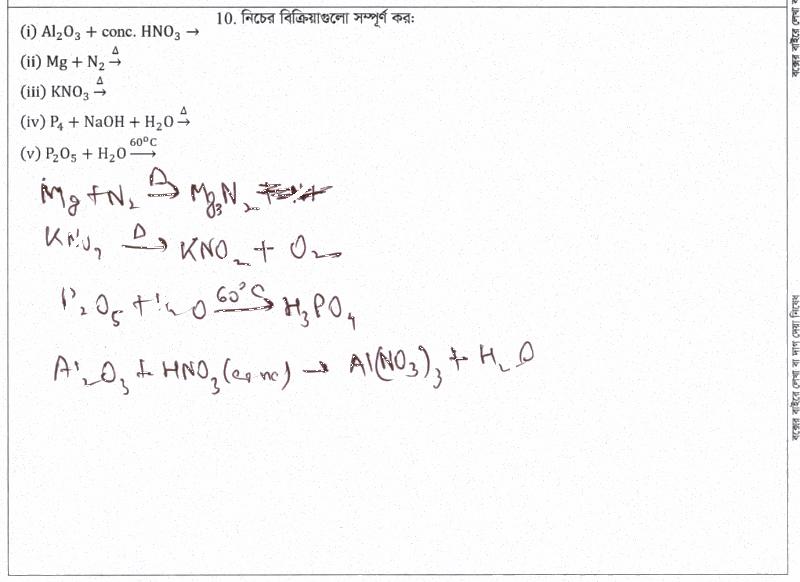 10. নিচের বিক্রিয়াগুলো সম্পূর্ণ কর:
(i) Al₂O₃ + conc. HNO₃ →
(ii) Mg + N₂ →Δ
(iii) KNO₃ →Δ
(iv) P₄ + NaOH + H₂O →Δ
(v) P₂O₅ + H₂O →60°C
Mg + N₂ →Δ Mg₃N₂
KNO₃ →Δ KNO₂ + O₂
P₂O₅ + H₂O →60°C H₃PO₄
Al₂O₃ + HNO₃(conc) → Al(NO₃)₃ + H₂O
বক্সের বাইরে লেখা বা দাগ দেয়া নিষেধ